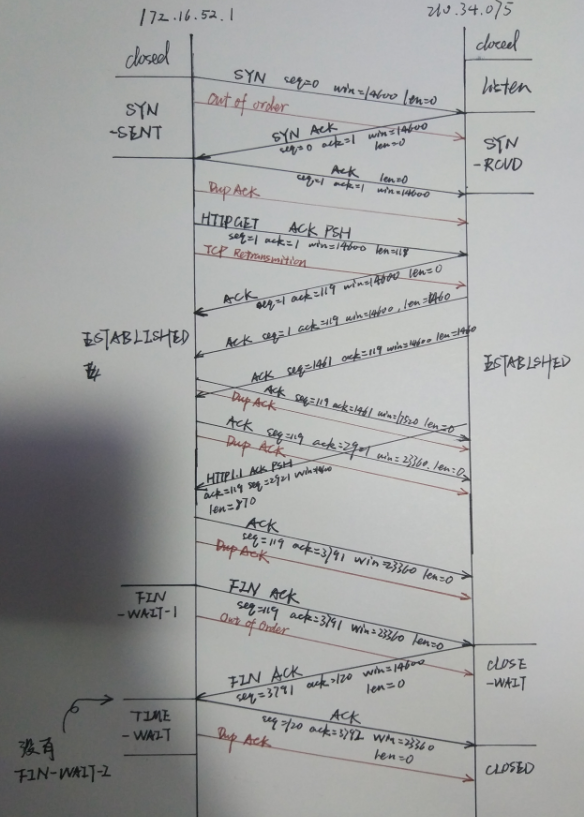 172.16.52.1
210.34.0.75
closed
closed
SYN seq=0 win=14600 len=0
Listen
Out of order
SYN
-SENT
SYN Ack
seq=0 ack=1 win=14600
len=0
SYN
-RCVD
Ack len=0
seq=1 ack=1 win=14600
Dup Ack
HTTP GET ACK PSH
seq=1 ack=1 win=14600 len=118
TCP Retransmition
ACK
seq=1 ack=119 win=14600 len=0
ACK seq=1 ack=119 win=14600, len=1460
ESTABLISHED
ACK seq=1461 ack=119 win=14600 len=1460
ESTABLISHED
ACK seq=119 ack=1461 win=17520 len=0
Dup ACK
ACK seq=119 ack=2921 win=23360, len=0
Dup ACK
HTTP1.1 Ack PSH
ack=119 seq=2921 win=14600
len=870
ACK
seq=119 ack=3791 win=23360 len=0
Dup Ack
FIN
-WAIT-1
FIN ACK
seq=119 ack=3791 win=23360 len=0
Out of Order
CLOSE
-WAIT
FIN ACK
seq=3791 ack=120 win=14600
len=0
TIME
-WAIT
ACK
seq=120 ack=3792 win=23360
len=0
Dup Ack
CLOSED
没有
FIN-WAIT-2